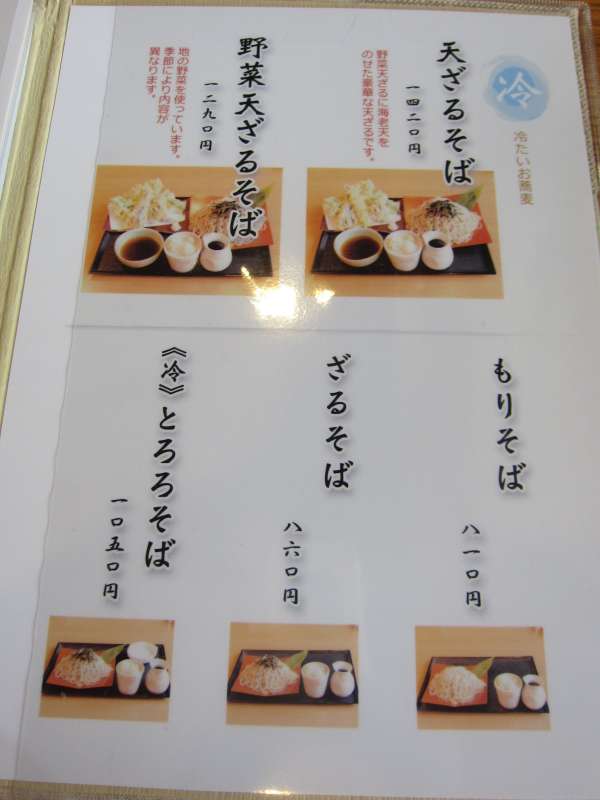 冷
冷たいお蕎麦
天ざるそば
一四二〇円
野菜天ざるに海老天を
のせた豪華な天ざるです。
野菜天ざるそば
一二九〇円
地の野菜を使っています。
季節により内容が
異なります。
もりそば
八一〇円
ざるそば
八六〇円
《冷》とろろそば
一〇五〇円